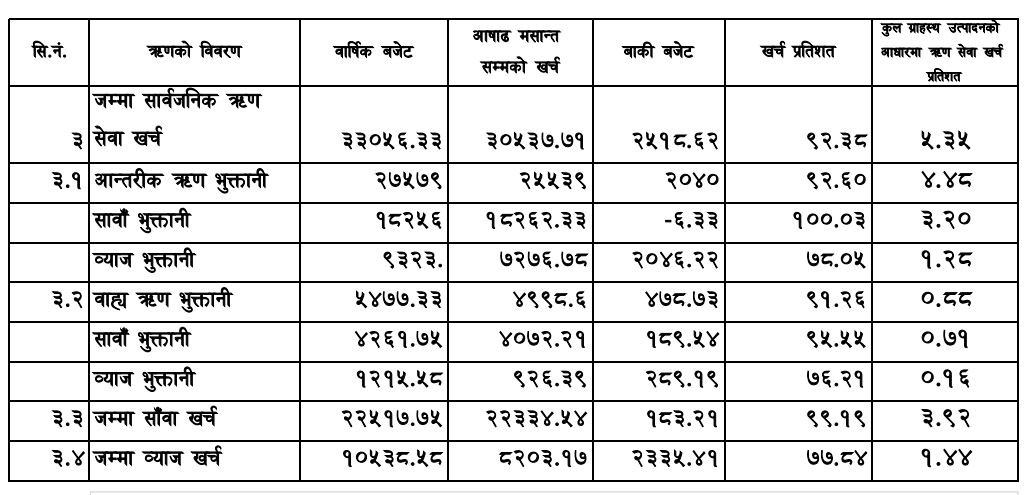 सि.नं. ऋणको विवरण वार्षिक बजेट आषाढ मसान्त सम्मको खर्च बाकी बजेट खर्च प्रतिशत कुल ग्राहस्थ उत्पादनको आधारमा ऋण सेवा खर्च प्रतिशत
३ जम्मा सार्वजनिक ऋण सेवा खर्च ३३०५६.३३ ३०५३७.७१ २५१८.६२ ९२.३८ ५.३५
३.१ आन्तरीक ऋण भुक्तानी २७५७९ २५५३९ २०४० ९२.६० ४.४८
सावाँ भुक्तानी १८२५६ १८२६२.३३ -६.३३ १००.०३ ३.२०
व्याज भुक्तानी ९३२३. ७२७६.७८ २०४६.२२ ७८.०५ १.२८
३.२ वाह्य ऋण भुक्तानी ५४७७.३३ ४९९८.६ ४७८.७३ ९१.२६ ०.८८
सावाँ भुक्तानी ४२६१.७५ ४०७२.२१ १८९.५४ ९५.५५ ०.७१
व्याज भुक्तानी १२१५.५८ ९२६.३९ २८९.१९ ७६.२१ ०.१६
३.३ जम्मा साँवा खर्च २२५१७.७५ २२३३४.५४ १८३.२१ ९९.१९ ३.९२
३.४ जम्मा व्याज खर्च १०५३८.५८ ८२०३.१७ २३३५.४१ ७७.८४ १.४४